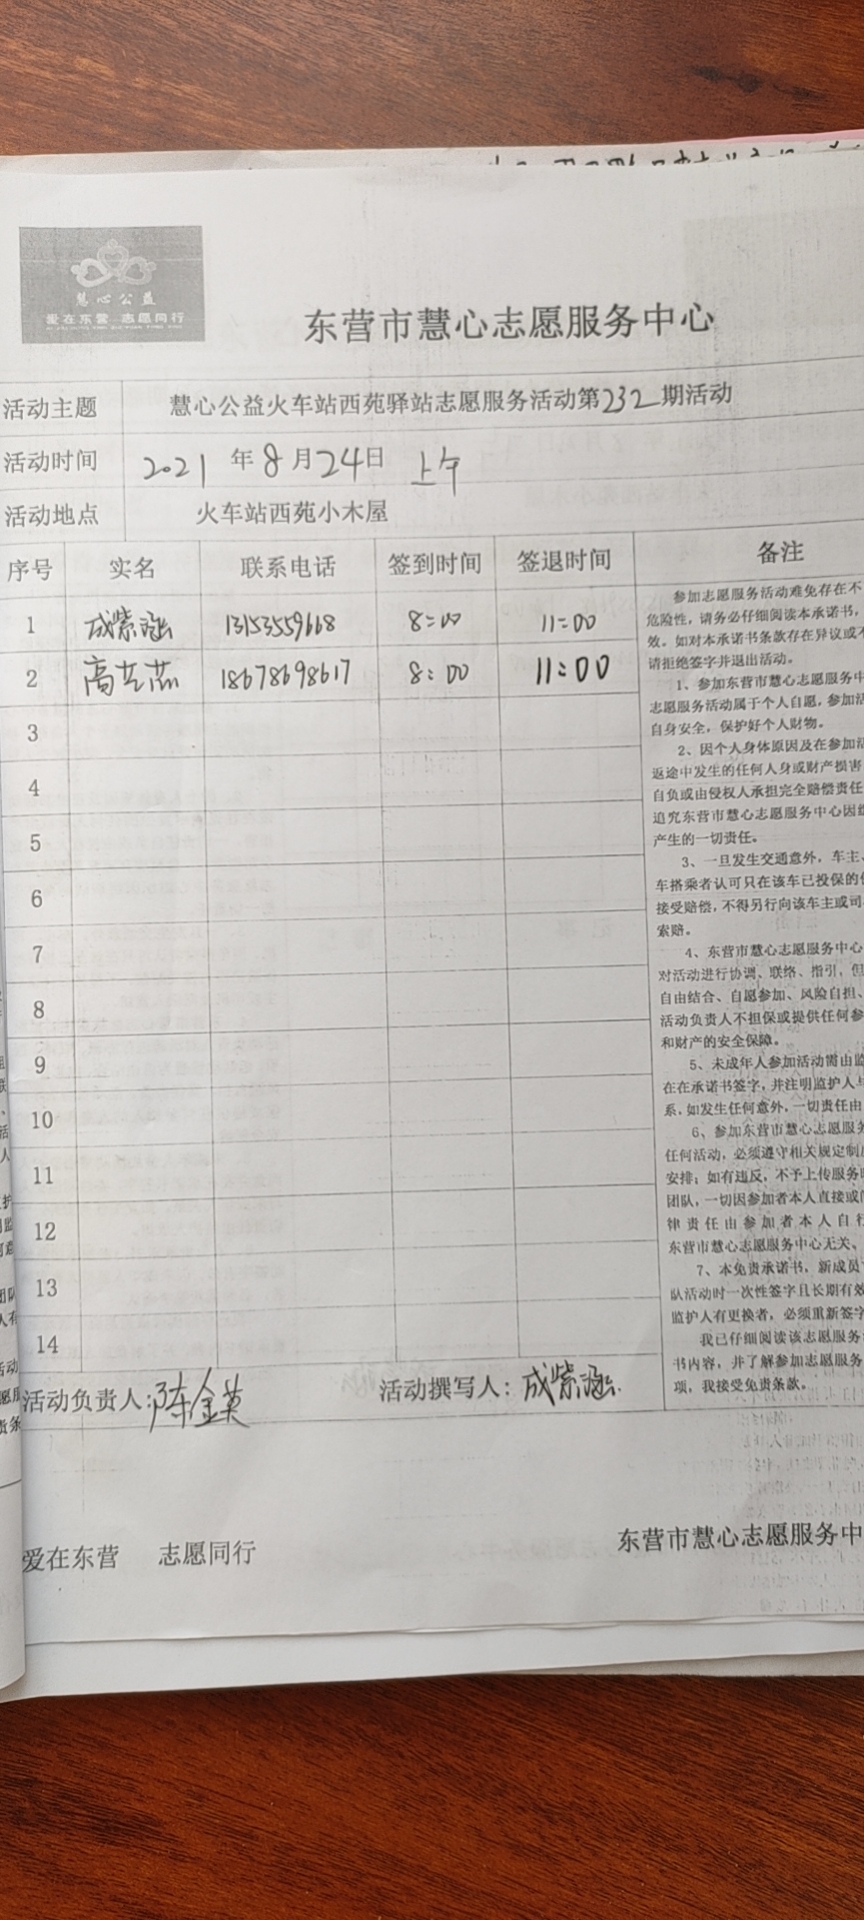 慧心公益
爱在东营 志愿同行
东营市慧心志愿服务中心
活动主题 慧心公益火车站西苑驿站志愿服务活动第232期活动
活动时间 2021年8月24日 上午
活动地点 火车站西苑小木屋
序号 实名 联系电话 签到时间 签退时间 备注
1 成紫涵 13153559668 8:00 11:00
2 高芝蕊 18678698617 8:00 11:00
3
4
5
6
7
8
9
10
11
12
13
14
参加志愿服务活动难免存在不
危险性，请务必仔细阅读本承诺书，
效。如对本承诺书条款存在异议或不
请拒绝签字并退出活动。
1、参加东营市慧心志愿服务中
志愿服务活动属于个人自愿，参加活
自身安全，保护好个人财物。
2、因个人身体原因及在参加活
返途中发生的任何人身或财产损害
自负或由侵权人承担完全赔偿责任
追究东营市慧心志愿服务中心因组
产生的一切责任。
3、一旦发生交通意外，车主、
车搭乘者认可只在该车已投保的
接受赔偿，不得另行向该车主或司
索赔。
4、东营市慧心志愿服务中心
对活动进行协调、联络、指引，但
自由结合、自愿参加、风险自担、
活动负责人不担保或提供任何参
和财产的安全保障。
5、未成年人参加活动需由监
在在承诺书签字，并注明监护人与
系，如发生任何意外，一切责任由
6、参加东营市慧心志愿服务
任何活动，必须遵守相关规定制
安排；如有违反，不予上传服务
团队，一切因参加者本人直接或
律责任由参加者本人自行
东营市慧心志愿服务中心无关、
7、本免责承诺书，新成员
队活动时一次性签字且长期有效
监护人有更换者，必须重新签字
我已仔细阅读该志愿服务
书内容，并了解参加志愿服务
项，我接受免责条款。
活动负责人：陈金英 活动撰写人：成紫涵
爱在东营 志愿同行 东营市慧心志愿服务中